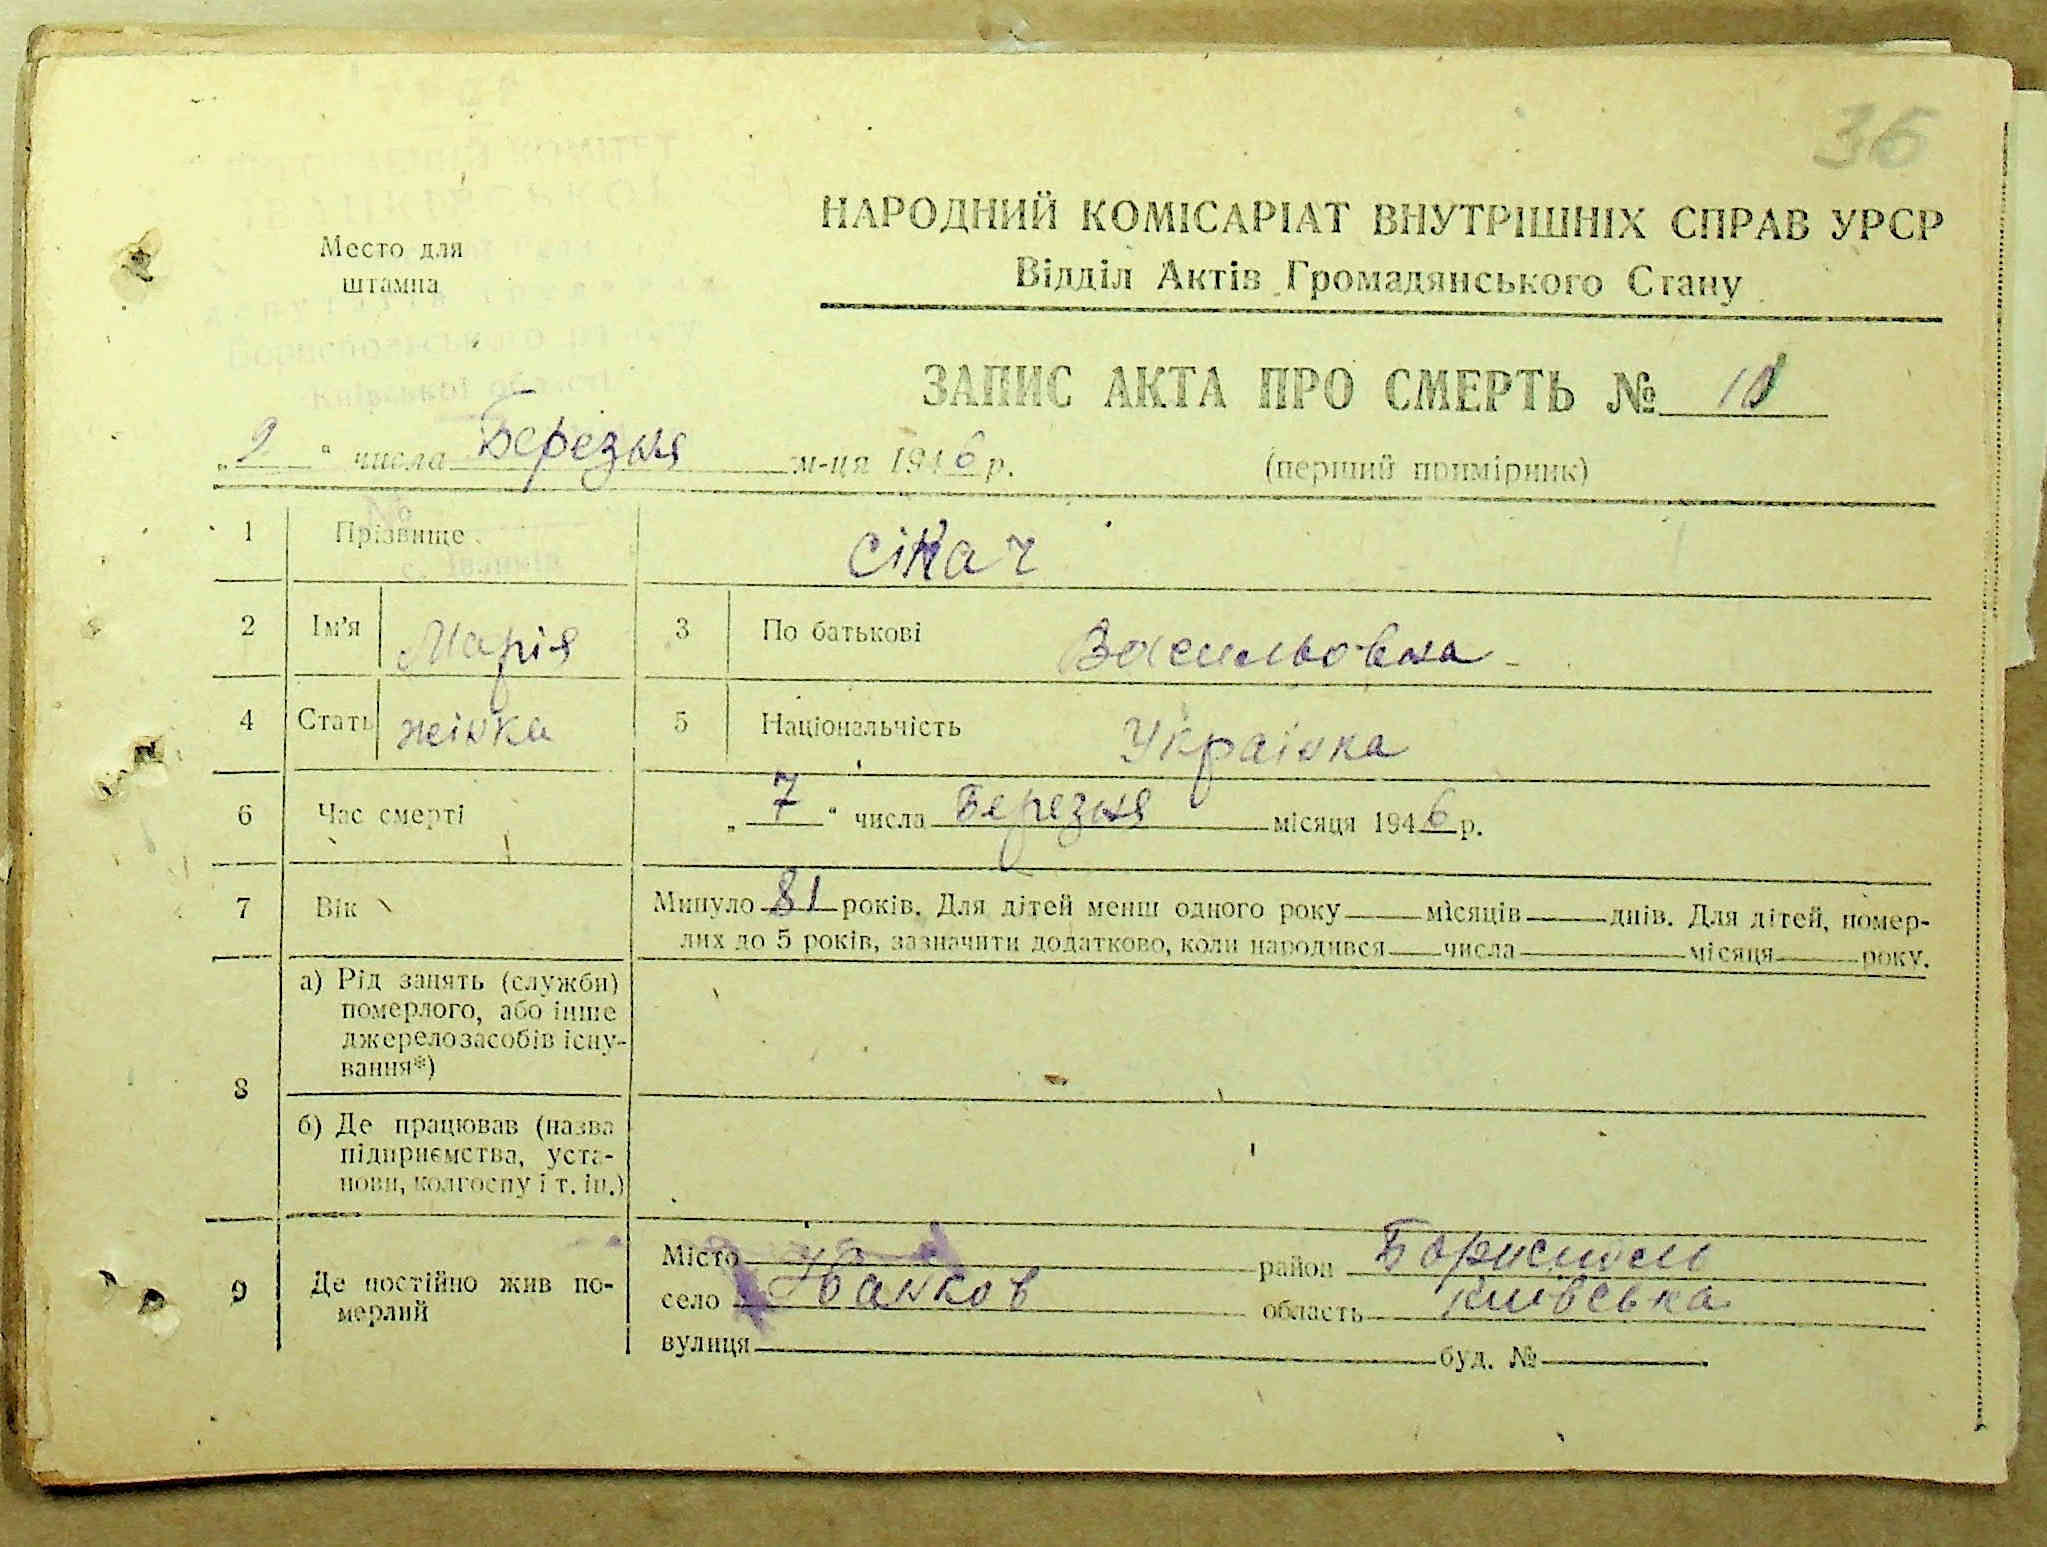 36
НАРОДНИЙ КОМІСАРІАТ ВНУТРІШНІХ СПРАВ УРСР
Відділ Актів Громадянського Стану
Место для
штампа
ЗАПИС АКТА ПРО СМЕРТЬ №
„9“ числа Березня м-ця 1946 р.
(перший примірник)
1 Прізвище Сікач
2 Ім'я Марія 3 По батькові Васильовна
4 Стать жінка 5 Національність Українка
6 Час смерті „7“ числа Березня місяця 1946 р.
7 Вік Минуло 81 років. Для дітей менш одного року місяців днів. Для дітей, помер-
лих до 5 років, зазначити додатково, коли народився числа місяця року.
8 а) Рід занять (служби)
померлого, або інше
джерело засобів існу-
вання*)
б) Де працював (назва
підприємства, уста-
нови, колгоспу і т. ін.)
9 Де постійно жив по-
мерлий
Місто район Бориспол
село Іванков область Київська
вулиця буд. №